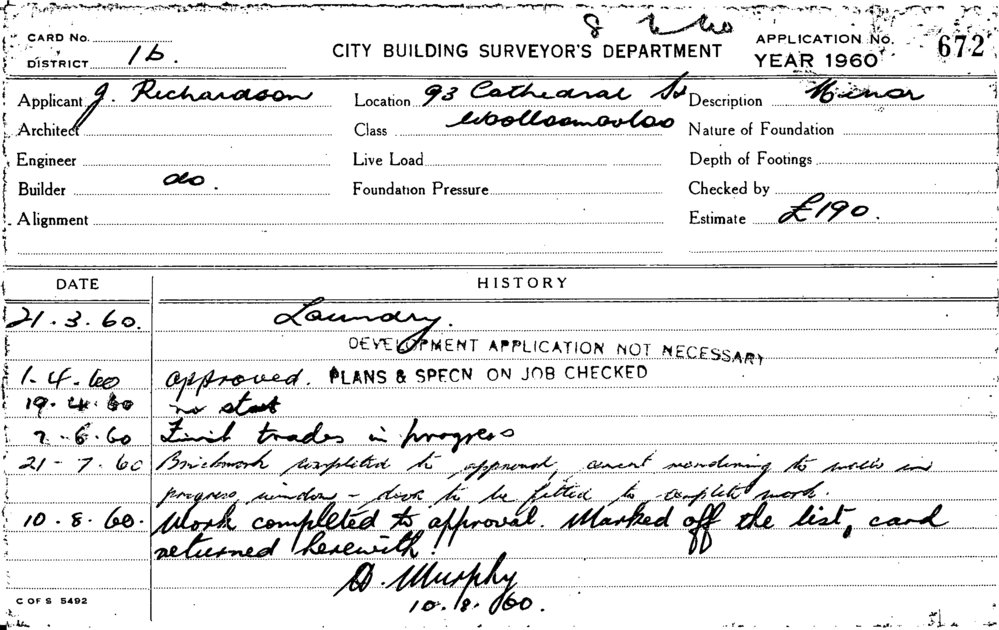 8
CARD No.
DISTRICT 1b.
CITY BUILDING SURVEYOR'S DEPARTMENT
APPLICATION No. 672
YEAR 1960
Applicant J. Richardson Location 93 Cathedral St Description Minor
Architect Class Woolloomooloo Nature of Foundation
Engineer Live Load Depth of Footings
Builder do. Foundation Pressure Checked by
Alignment Estimate £190.
DATE HISTORY
21.3.60. Laundry.
DEVELOPMENT APPLICATION NOT NECESSARY
1.4.60 approved. PLANS & SPECN ON JOB CHECKED
19.4.60 no start
7.6.60 Finish trades in progress
21-7.60 Brickwork completed to approval, cement rendering to walls in
progress, window - door to be fitted to complete work.
10.8.60. Work completed to approval. Marked off the list, card
returned herewith.
D. Murphy
10.8.60.
C OF S 5492